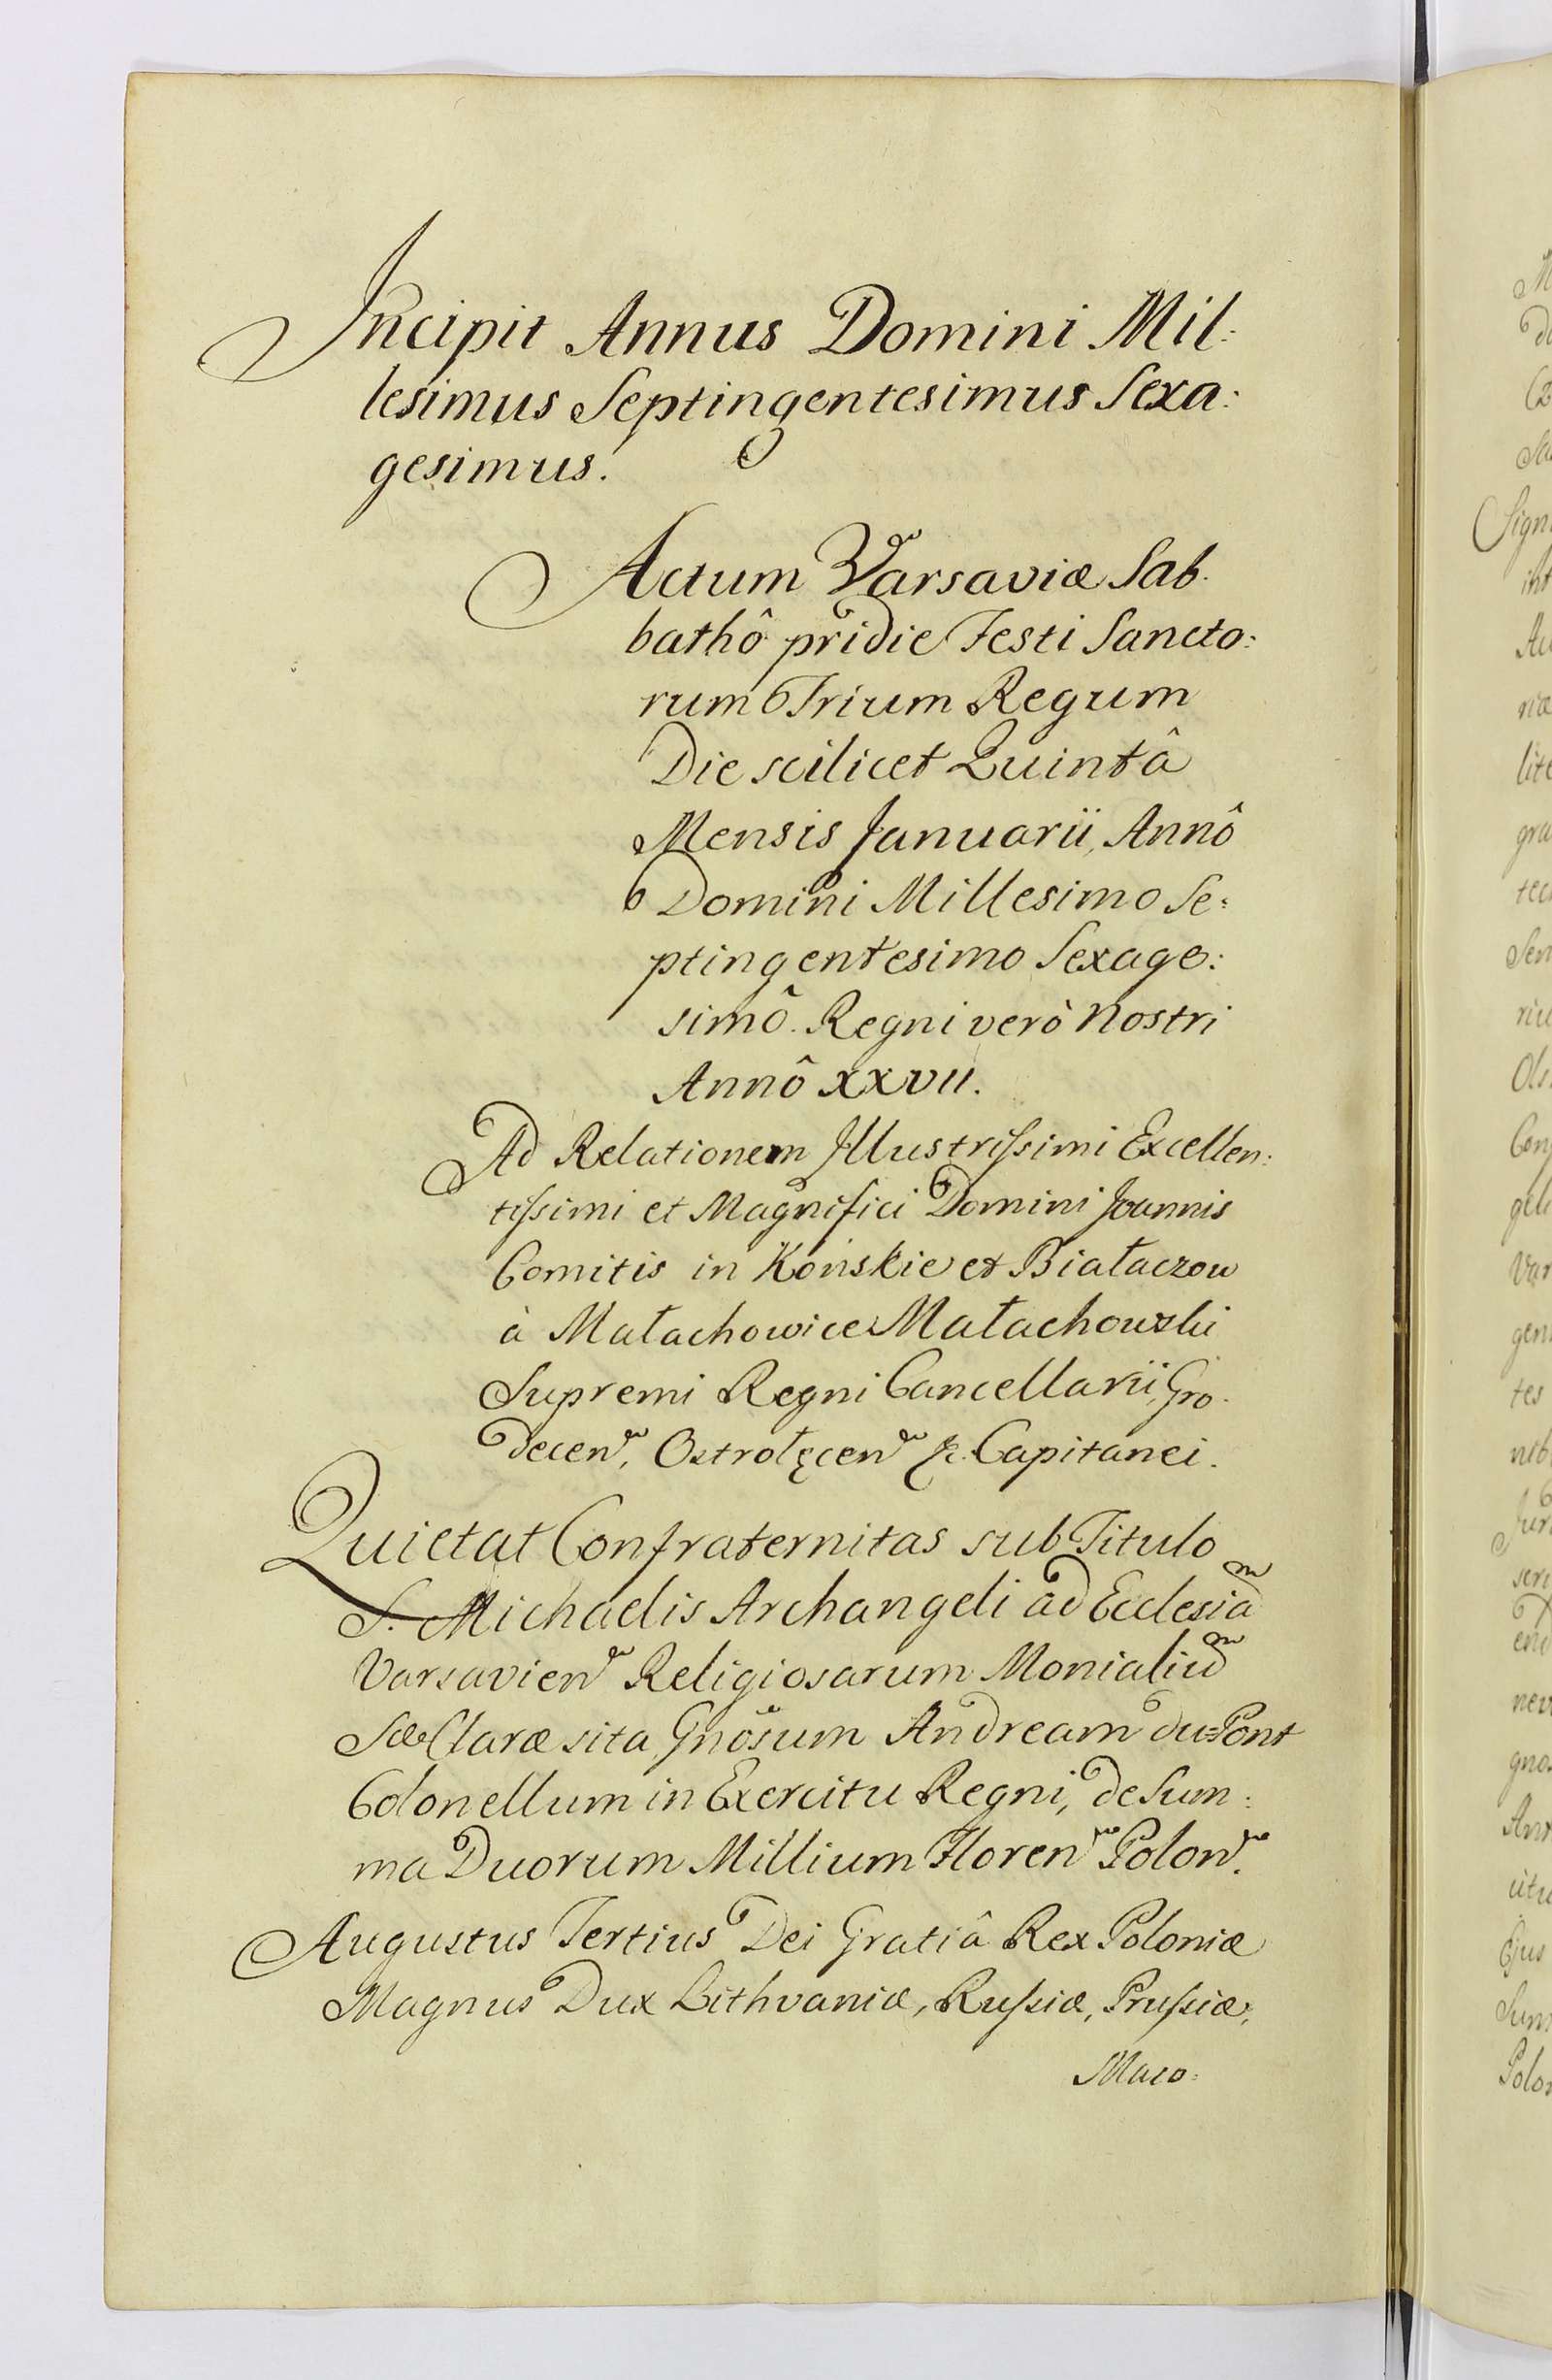 Incipit Annus Domini Mil:
lesimus Septingentesimus Sexa:
gesimus.
Actum Varsaviæ Sab.
bathô pridie Festi Sancto:
rum Trium Regum
Die scilicet Quintâ
Mensis Januarii, Annô
Domini Millesimo Se:
ptingentesimo Sexage:
simô. Regni verò Nostri
Annô XXVII.
Ad Relationem Illustrissimi Excellen:
tissimi et Magnifici Domini Joannis
Comitis in Końskie et Białaczow
à Małachowice Małachowski
Supremi Regni Cancellarii, Gro.
decen, Ostrołęcen &c. Capitanei.
Quietat Confraternitas sub Titulo
S. Michaelis Archangeli ad Ecclesia
Varsavien Religiosarum Monialiu
Sæ Claræ sita, Gnosum Andream du=Pont
Colonellum in Exercitu Regni, de Sum:
ma Duorum Millium Floren Polon.
Augustus Tertius Dei Gratiâ Rex Poloniæ
Magnus Dux Lithvaniæ, Russiæ, Prussiæ,
Maso: